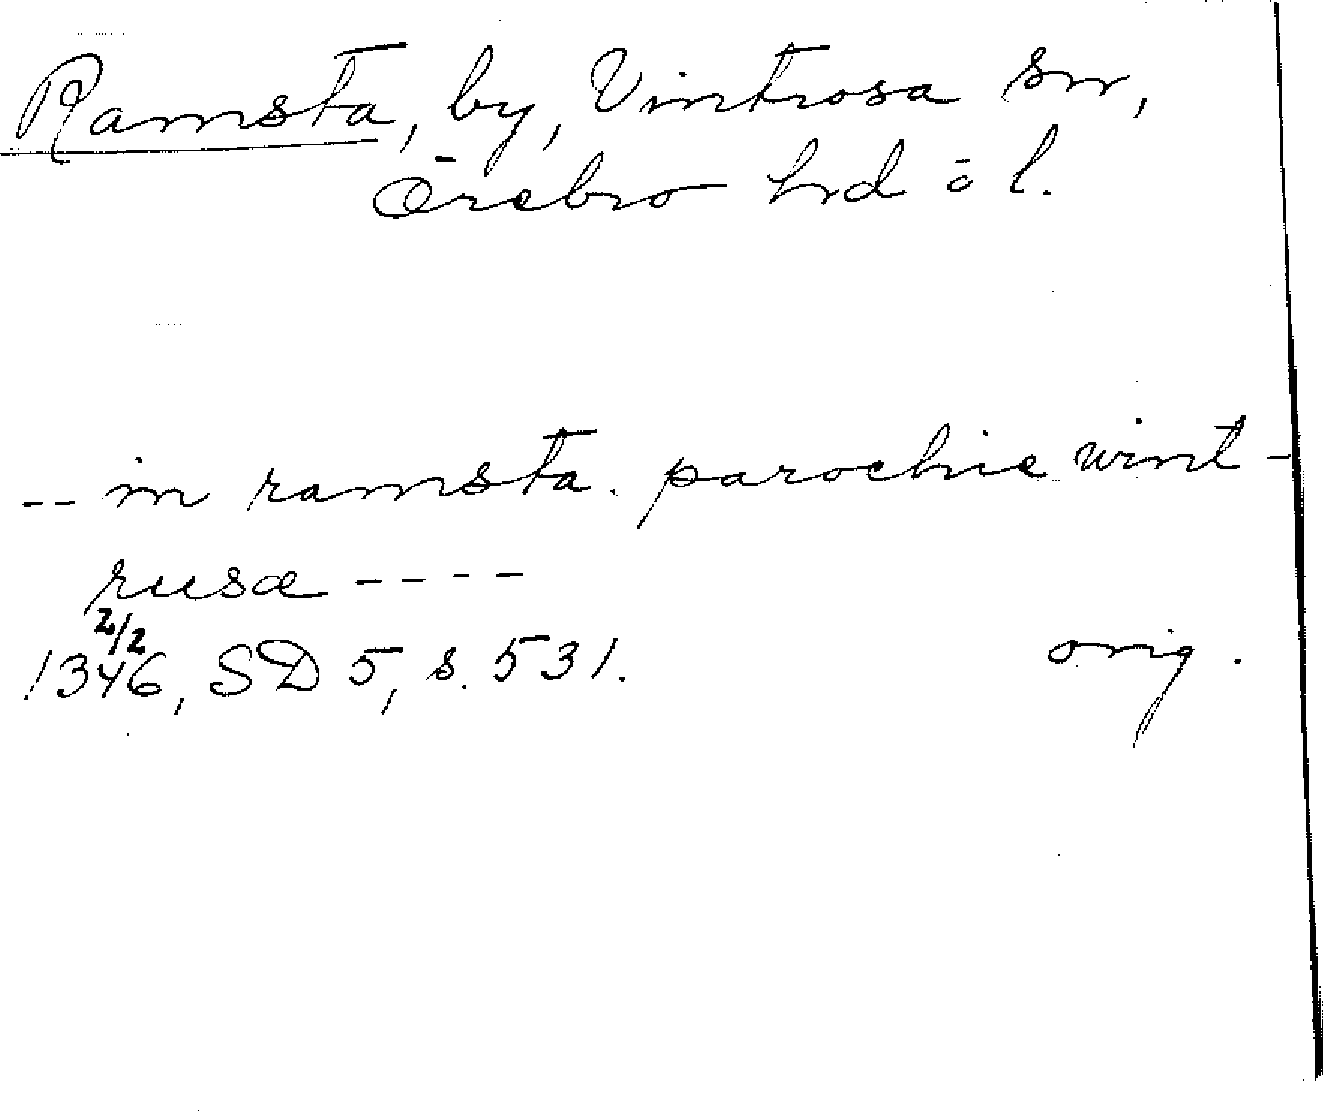 Ramsta, by, Vintrosa sn,
Örebro hrd o l.
-- in ramsta. parochie wint-
rusæ ----
2/2
1346, SD 5, s. 531. orig.